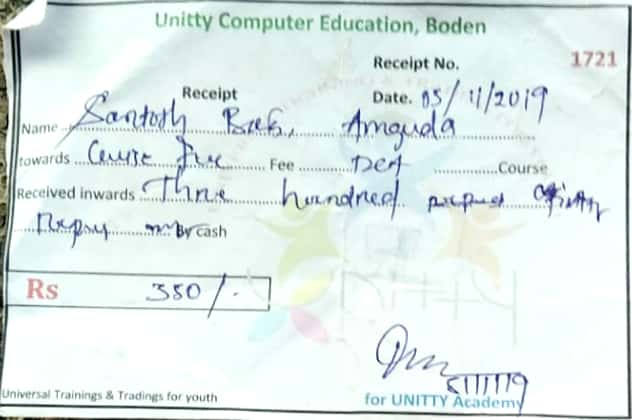 Unitty Computer Education, Boden
Receipt No. 1721
Receipt
Date. 05/11/2019
Name Santosh Amguda
towards Course Fee Course
Received inwards Three hundred
By cash
Rs 350/-
5/11/19
Universal Trainings & Tradings for youth
for UNITTY Academy